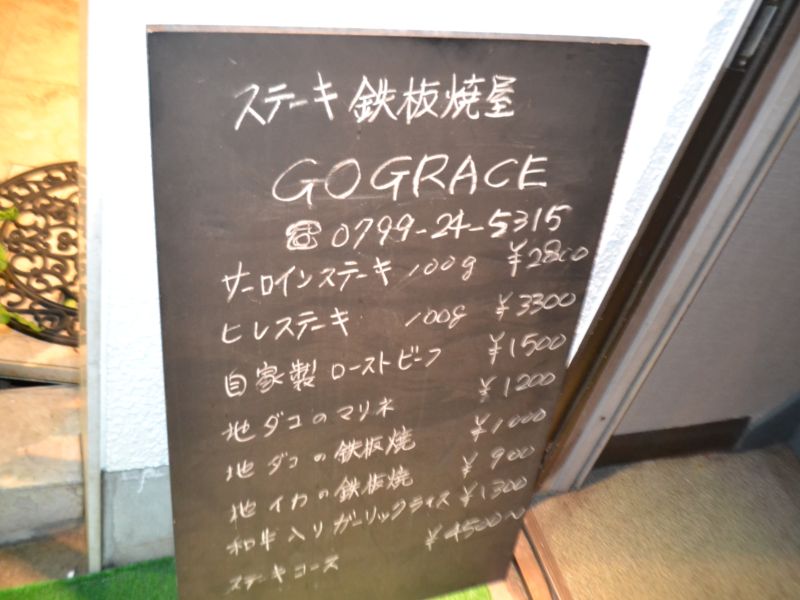 ステーキ 鉄板焼屋
GOGRACE
☎ 0799-24-5315
サーロインステーキ 100g ¥2800
ヒレステーキ 100g ¥3300
自家製 ローストビーフ ¥1500
地ダコのマリネ ¥1200
地ダコの鉄板焼 ¥1000
地イカの鉄板焼 ¥900
和牛入りガーリックライス ¥1300
ステーキコース ¥4500〜